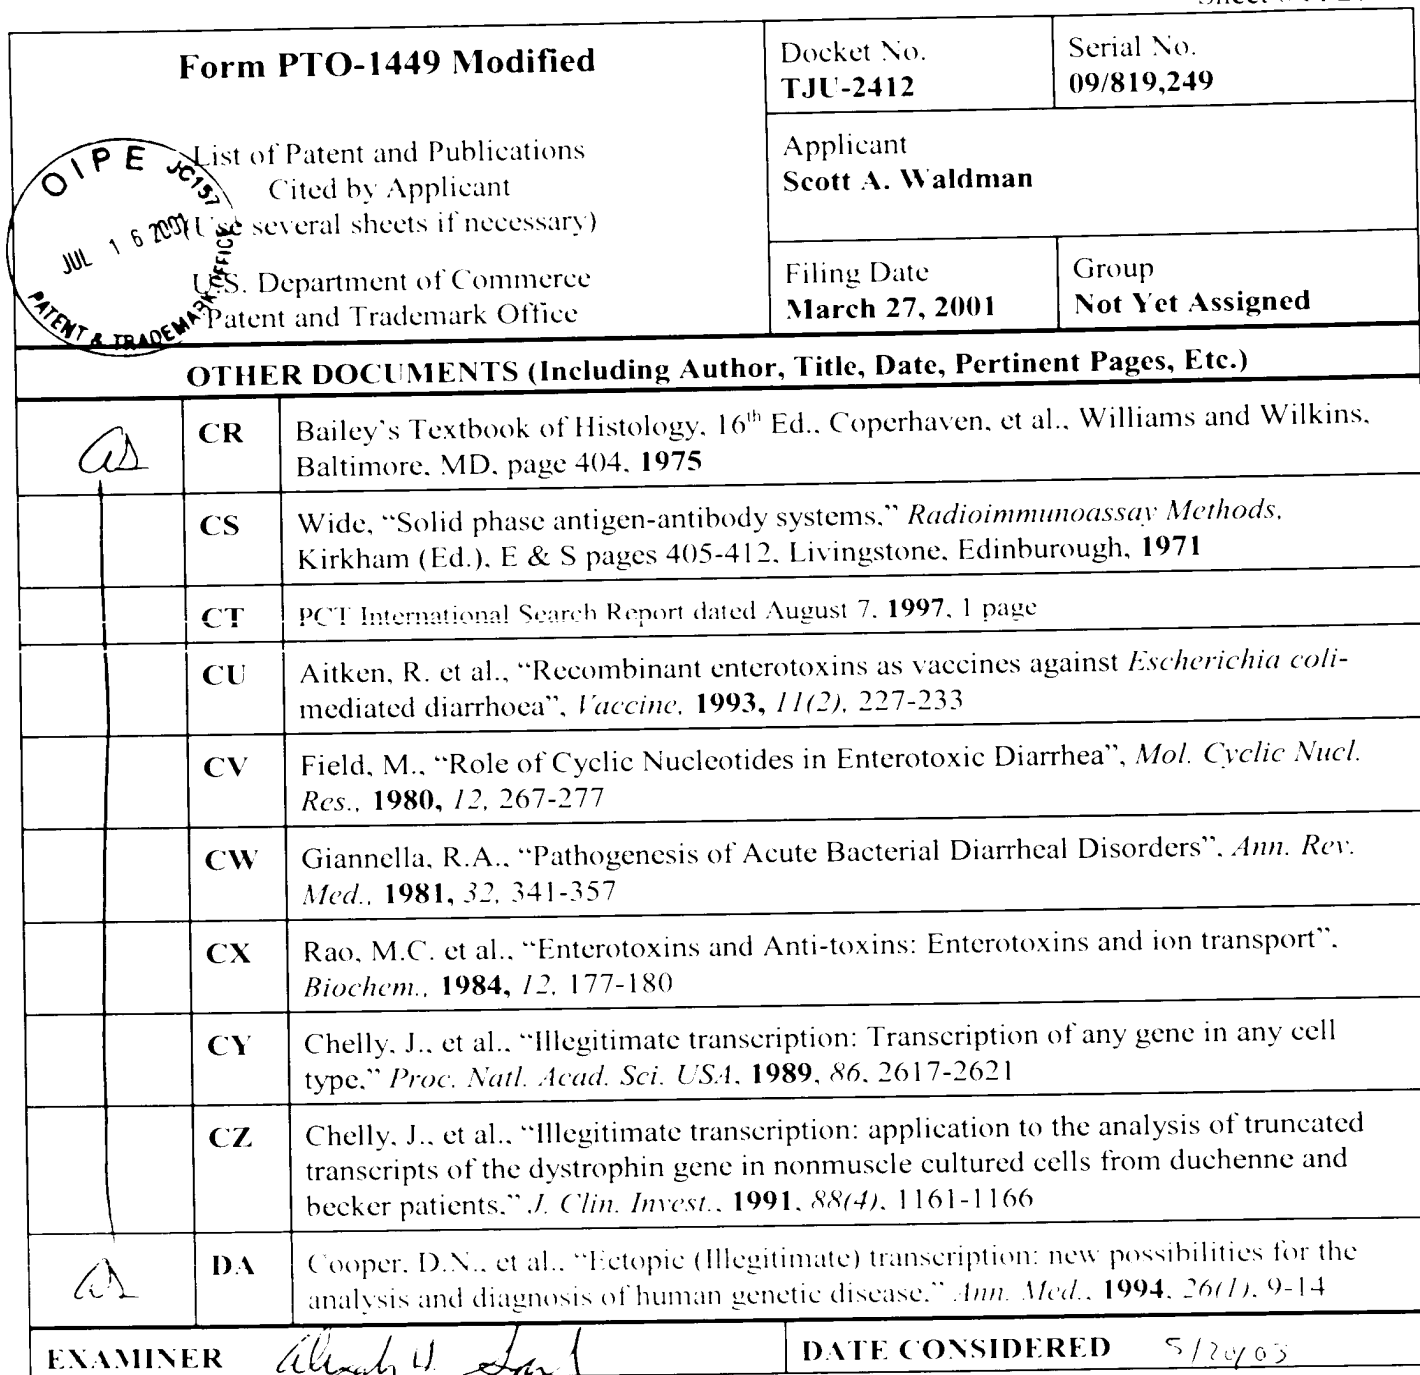 Form PTO-1449 Modified
List of Patent and Publications
Cited by Applicant
(Use several sheets if necessary)
U.S. Department of Commerce
Patent and Trademark Office
OIPE JC157
JUL 16 2001
PATENT & TRADEMARK OFFICE
Docket No.
TJU-2412
Serial No.
09/819,249
Applicant
Scott A. Waldman
Filing Date
March 27, 2001
Group
Not Yet Assigned
OTHER DOCUMENTS (Including Author, Title, Date, Pertinent Pages, Etc.)
as
CR
Bailey's Textbook of Histology, 16th Ed., Coperhaven, et al., Williams and Wilkins,
Baltimore, MD, page 404, 1975
CS
Wide, "Solid phase antigen-antibody systems," Radioimmunoassay Methods,
Kirkham (Ed.), E & S pages 405-412, Livingstone, Edinburough, 1971
CT
PCT International Search Report dated August 7, 1997, 1 page
CU
Aitken, R. et al., "Recombinant enterotoxins as vaccines against Escherichia coli-
mediated diarrhoea", Vaccine, 1993, 11(2), 227-233
CV
Field, M., "Role of Cyclic Nucleotides in Enterotoxic Diarrhea", Mol. Cyclic Nucl.
Res., 1980, 12, 267-277
CW
Giannella, R.A., "Pathogenesis of Acute Bacterial Diarrheal Disorders", Ann. Rev.
Med., 1981, 32, 341-357
CX
Rao, M.C. et al., "Enterotoxins and Anti-toxins: Enterotoxins and ion transport",
Biochem., 1984, 12, 177-180
CY
Chelly, J., et al., "Illegitimate transcription: Transcription of any gene in any cell
type," Proc. Natl. Acad. Sci. USA, 1989, 86, 2617-2621
CZ
Chelly, J., et al., "Illegitimate transcription: application to the analysis of truncated
transcripts of the dystrophin gene in nonmuscle cultured cells from duchenne and
becker patients," J. Clin. Invest., 1991, 88(4), 1161-1166
as
DA
Cooper, D.N., et al., "Ectopic (Illegitimate) transcription: new possibilities for the
analysis and diagnosis of human genetic disease," Ann. Med., 1994, 26(1), 9-14
EXAMINER
DATE CONSIDERED 5/20/03